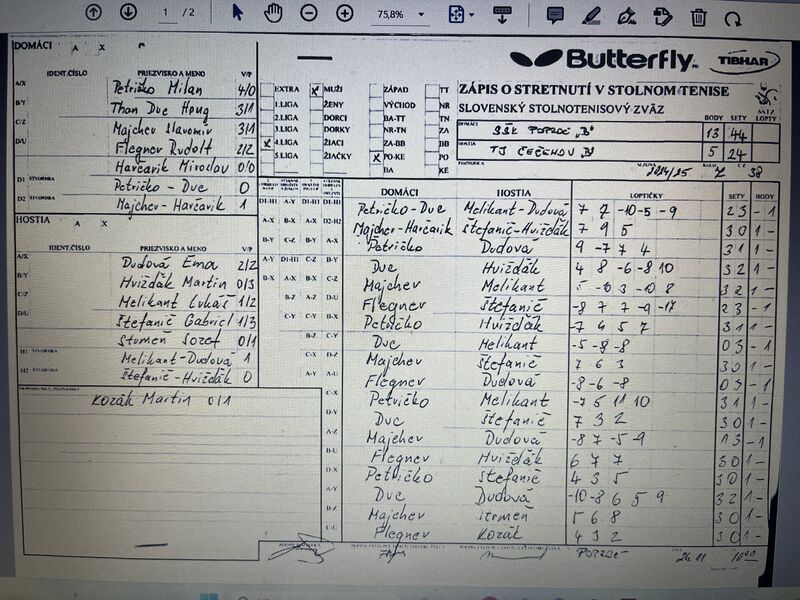 1 / 2
75,8%
DOMÁCI A X
IDENT.ČÍSLO PRIEZVISKO A MENO V/P
A/X Petričko Milan 4/0
B/Y Than Duc Hong 3/1
C/Z Majchev Slavomir 3/1
D/U Flegner Rudolf 2/2
Harčarik Miroslav 0/0
D1 Petričko - Duc 0
D2 Majchev - Harčarik 1
HOSTIA A X
IDENT.ČÍSLO PRIEZVISKO A MENO V/P
A/X Dudová Ema 2/2
B/Y Hvižďák Martin 0/3
C/Z Melikant Lukáš 1/2
D/U Štefanič Gabriel 1/3
Stumen Jozef 0/1
H1 Melikant-Dudová 1
H2 Štefanič-Hvižďák 0
Kozák Martin 0/1
Butterfly TIBHAR
EXTRA X MUŽI ZÁPAD TT
1.LIGA ŽENY VÝCHOD NR
2.LIGA DORCI BA-TT TN
3.LIGA DORKY NR-TN ZA
X 4.LIGA ŽIACI ZA-BB BB
5.LIGA ŽIAČKY X PO-KE PO
BA KE
ZÁPIS O STRETNUTÍ V STOLNOM TENISE
SLOVENSKÝ STOLNOTENISOVÝ ZVÄZ
BODY SETY LOPTY
DOMÁCI SŠK POPROČ „B" 13 44
HOSTIA TJ ČEČEHOV B 5 24
2024/25 7 38
DOMÁCI HOSTIA LOPTIČKY SETY BODY
Petričko-Duc Melikant-Dudová 7 7 -10 -5 -9 2 3 - 1
Majchev-Harčarik Štefanič-Hvižďák 7 9 5 3 0 1 -
Petričko Dudová 9 -7 7 4 3 1 1 -
Duc Hvižďák 4 8 -6 -8 10 3 2 1 -
Majchev Melikant 3 2 1 -
Flegner Štefanič -8 7 7 -9 -17 2 3 - 1
Petričko Hvižďák -7 4 5 7 3 1 1 -
Duc Melikant -5 -8 -8 0 3 - 1
Majchev Štefanič 7 6 3 3 0 1 -
Flegner Dudová -8 -6 -8 0 3 - 1
Petričko Melikant -7 5 11 10 3 1 1 -
Duc Štefanič 7 3 2 3 0 1 -
Majchev Dudová -8 7 -5 -9 1 3 - 1
Flegner Hvižďák 6 7 7 3 0 1 -
Petričko Štefanič 4 3 5 3 0 1 -
Duc Dudová -10 -8 6 5 9 3 2 1 -
Majchev 5 6 8 3 0 1 -
Flegner Kozák 4 3 2 3 0 1 -
POPROČ 24.11 10:00